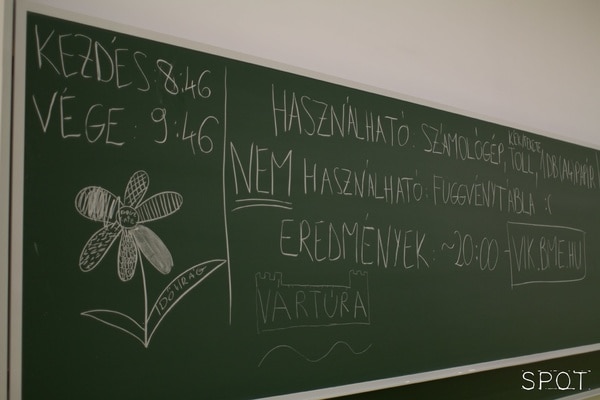 KEZDÉS: 8:46
VÉGE: 9:46
IDŐVIRÁG
HASZNÁLHATÓ: SZÁMOLÓGÉP, TOLL, 1 DB (A4) PAPÍR
NEM HASZNÁLHATÓ: FÜGGVÉNYTÁBLA :(
EREDMÉNYEK: ~20:00 - VIK.BME.HU
VÁRTÚRA
SPOT